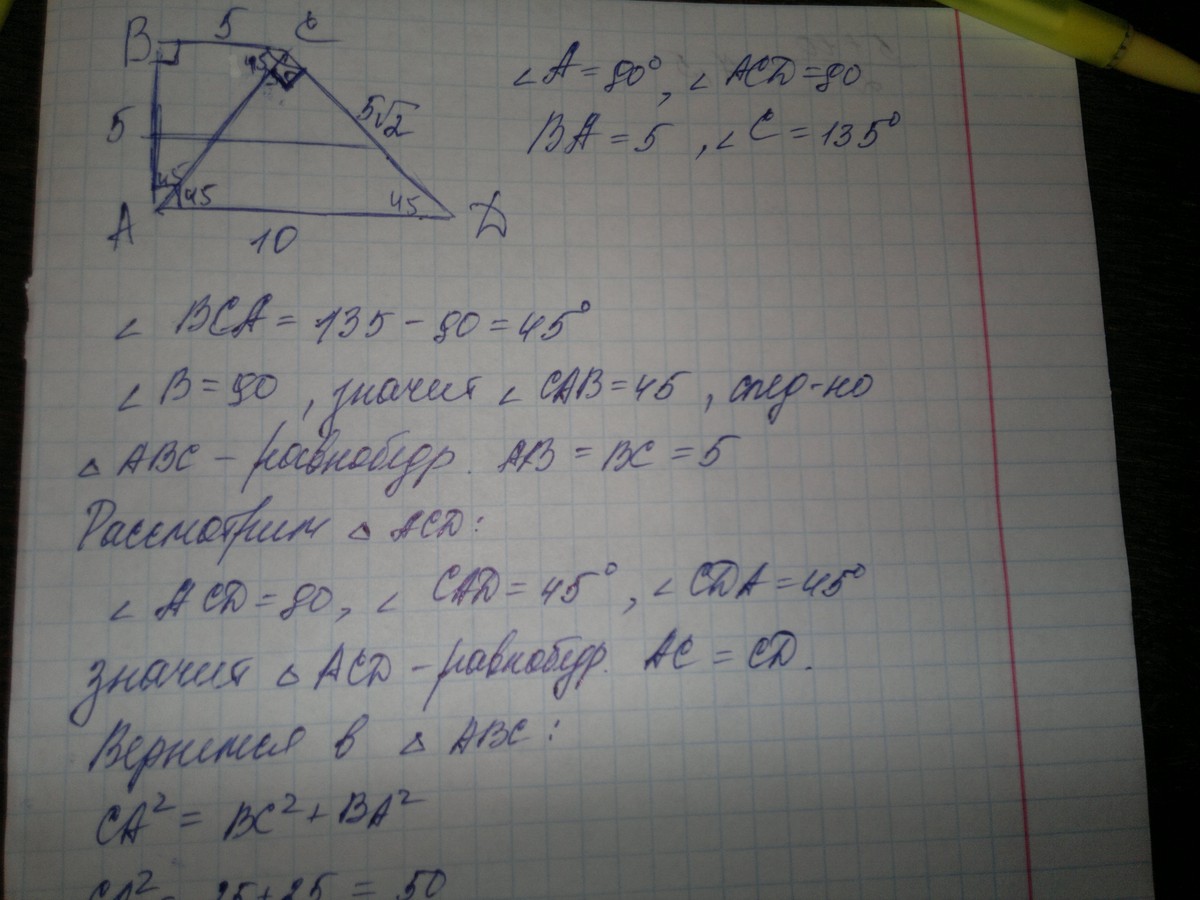 B 5 C
45
5 5√2
45 45 45
A 10 D
∠A = 90°, ∠ACD = 90
BA = 5, ∠C = 135°
∠ BCA = 135 - 90 = 45°
∠B = 90, значит ∠CAB = 45, след-но
△ABC - равнобедр. AB = BC = 5
Рассмотрим △ ACD:
∠ ACD = 90, ∠ CAD = 45°, ∠CDA = 45°
значит △ ACD - равнобедр. AC = CD.
Вернемся в △ ABC:
CA² = BC² + BA²
CA² = 25+25 = 50